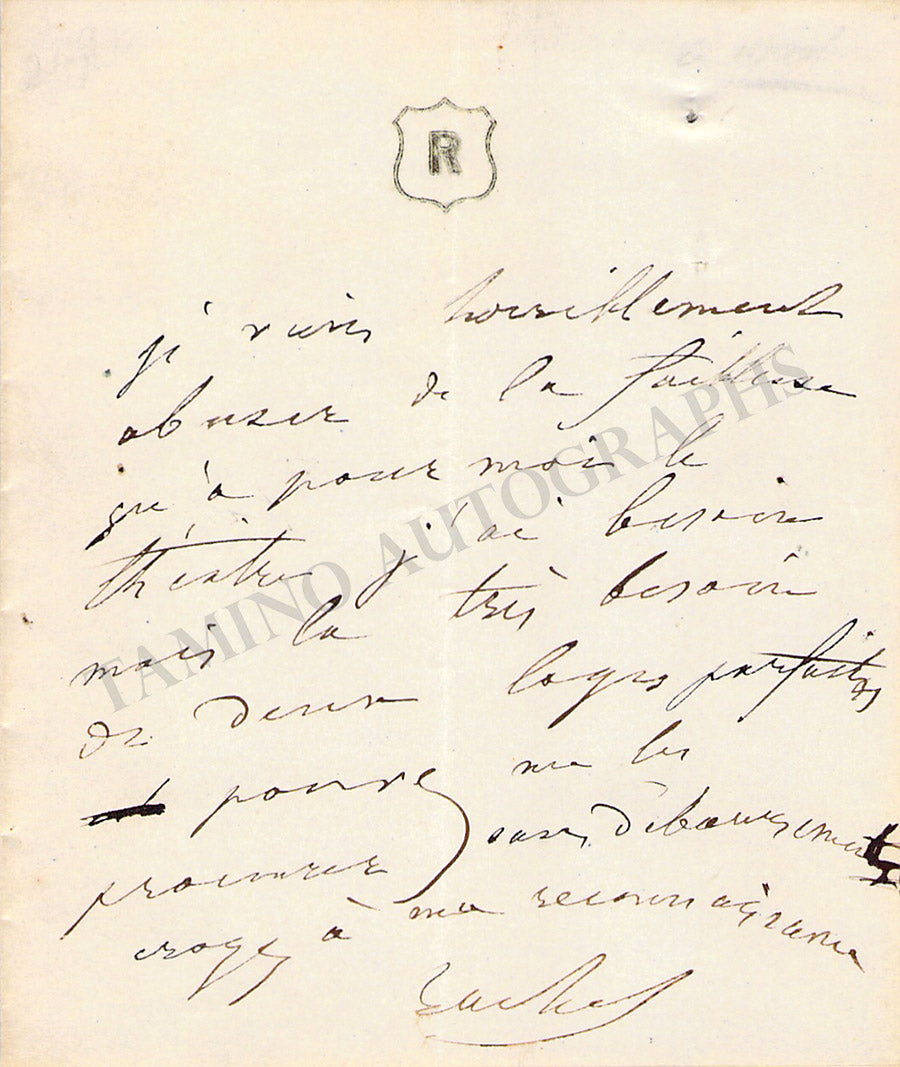 R
je viens horriblement
abuser de la faiblesse
qu'a pour moi le
théâtre j'ai besoin
mais là très besoin
de deux loges parfaites
pouvez me les
procurer sans déboursement
croyez à ma reconnaissance
Rachel
TAMINO AUTOGRAPHS